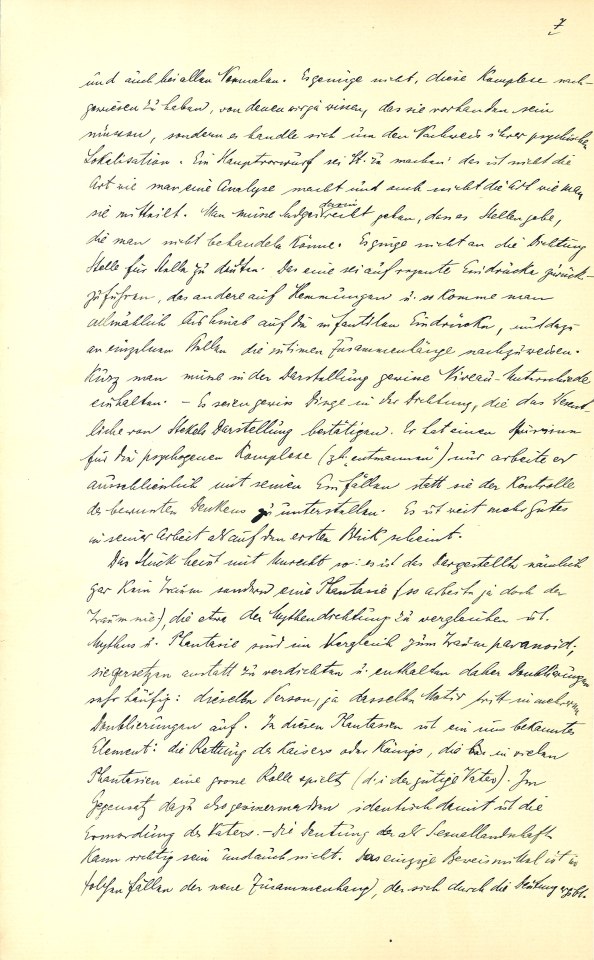 7
und auch bei allen Normalen. Es genüge nicht, diese Komplexe nach-
gewiesen zu haben, von denen wir ja wissen, dass sie vorhanden sein
müssen, sondern es handle sich um den Nachweis ihrer psychischen
Lokalisation. Ein Hauptvorwurf sei St: zu machen: das ist nicht die
Art wie man eine Analyse macht und auch nicht die Art wie man
sie mitteilt. Man müsse darin
recht geben, dass es Stellen gebe,
die man nicht behandeln könne. Es ginge nicht an die Dichtung
Stelle für Stelle zu deuten. Das eine sei auf rezente Eindrücke zurück-
zuführen, das andere auf Hemmungen u. so komme man
allmählich bis hinab auf die infantilen Eindrücke, und dazu
an einzelnen Stellen die intimen Zusammenhänge nachzuweisen.
Kurz man müsse in der Darstellung gewisse Niveau-Unterschiede
einhalten. – Es seien gewiss Dinge in der Dichtung, die das Wesent-
liche von Stekels Darstellung bestätigen. Er hat einen Spürsinn
für die psychogenen Komplexe (zB. „entmannen“) nur arbeite er
ausschliesslich mit seinen Einfällen statt sie der Kontrolle
des bewussten Denkens zu unterstellen. Es ist weit mehr Gutes
in seiner Arbeit als auf den ersten Blick scheint.
Das Stück heisst mit Unrecht so: es ist das Dargestellte nämlich
gar kein Traum sondern eine Phantasie (so arbeite ja doch der
Traum nie), die etwa der Mythendichtung zu vergleichen ist.
Mythus u. Phantasie sind im Vergleich zum Traum paranoid.
sie zersetzen anstatt zu verdichten u. enthalten daher Doublierungen
sehr häufig: dieselbe Person, ja dasselbe Motiv tritt in mehreren
Doublierungen auf. In diesen Phantasien ist ein uns bekanntes
Element: die Rettung des Kaisers oder Königs, die in vielen
Phantasien eine grosse Rolle spielt (d. i. der gütige Vater). Im
Gegensatz dazu also gewissermassen identisch damit ist die
Ermordung des Vaters. – Die Deutung der als Sexuallandschaft
kann richtig sein und auch nicht. Das einzige Beweismittel ist in
solchen Fällen der neue Zusammenhang, der sich durch die Deutung ergibt.